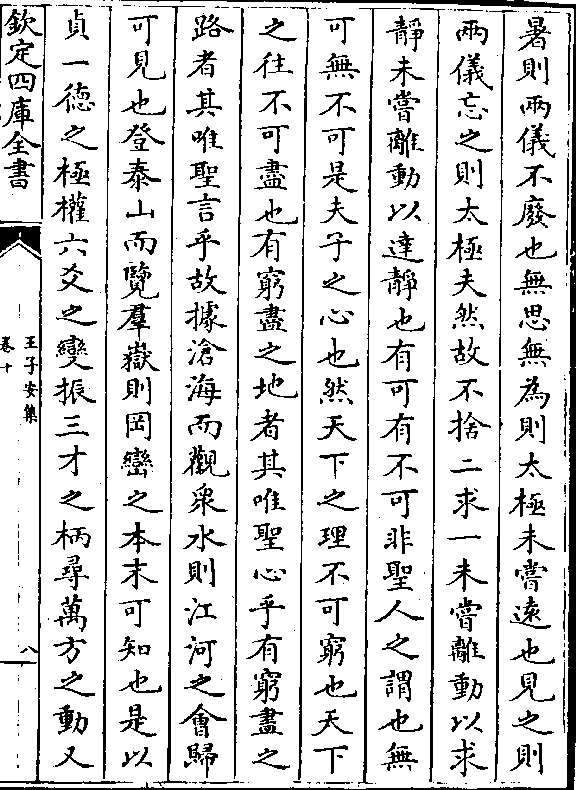 暑則兩儀不廢也無思無為則太極未嘗遠也見之則
兩儀忘之則太極夫然故不捨二求一未嘗離動以求
靜未嘗離動以達靜也有可有不可非聖人之謂也無
可無不可是夫子之心也然天下之理不可窮也天下
之往不可盡也有窮盡之地者其唯聖心乎有窮盡之
路者其唯聖言乎故據滄海而觀衆水則江河之會歸
可見也登泰山而覽羣嶽則岡巒之本末可知也是以
貞一德之極權六爻之變振三才之柄尋萬方之動又
欽定四庫全書
王子安集
卷十
八